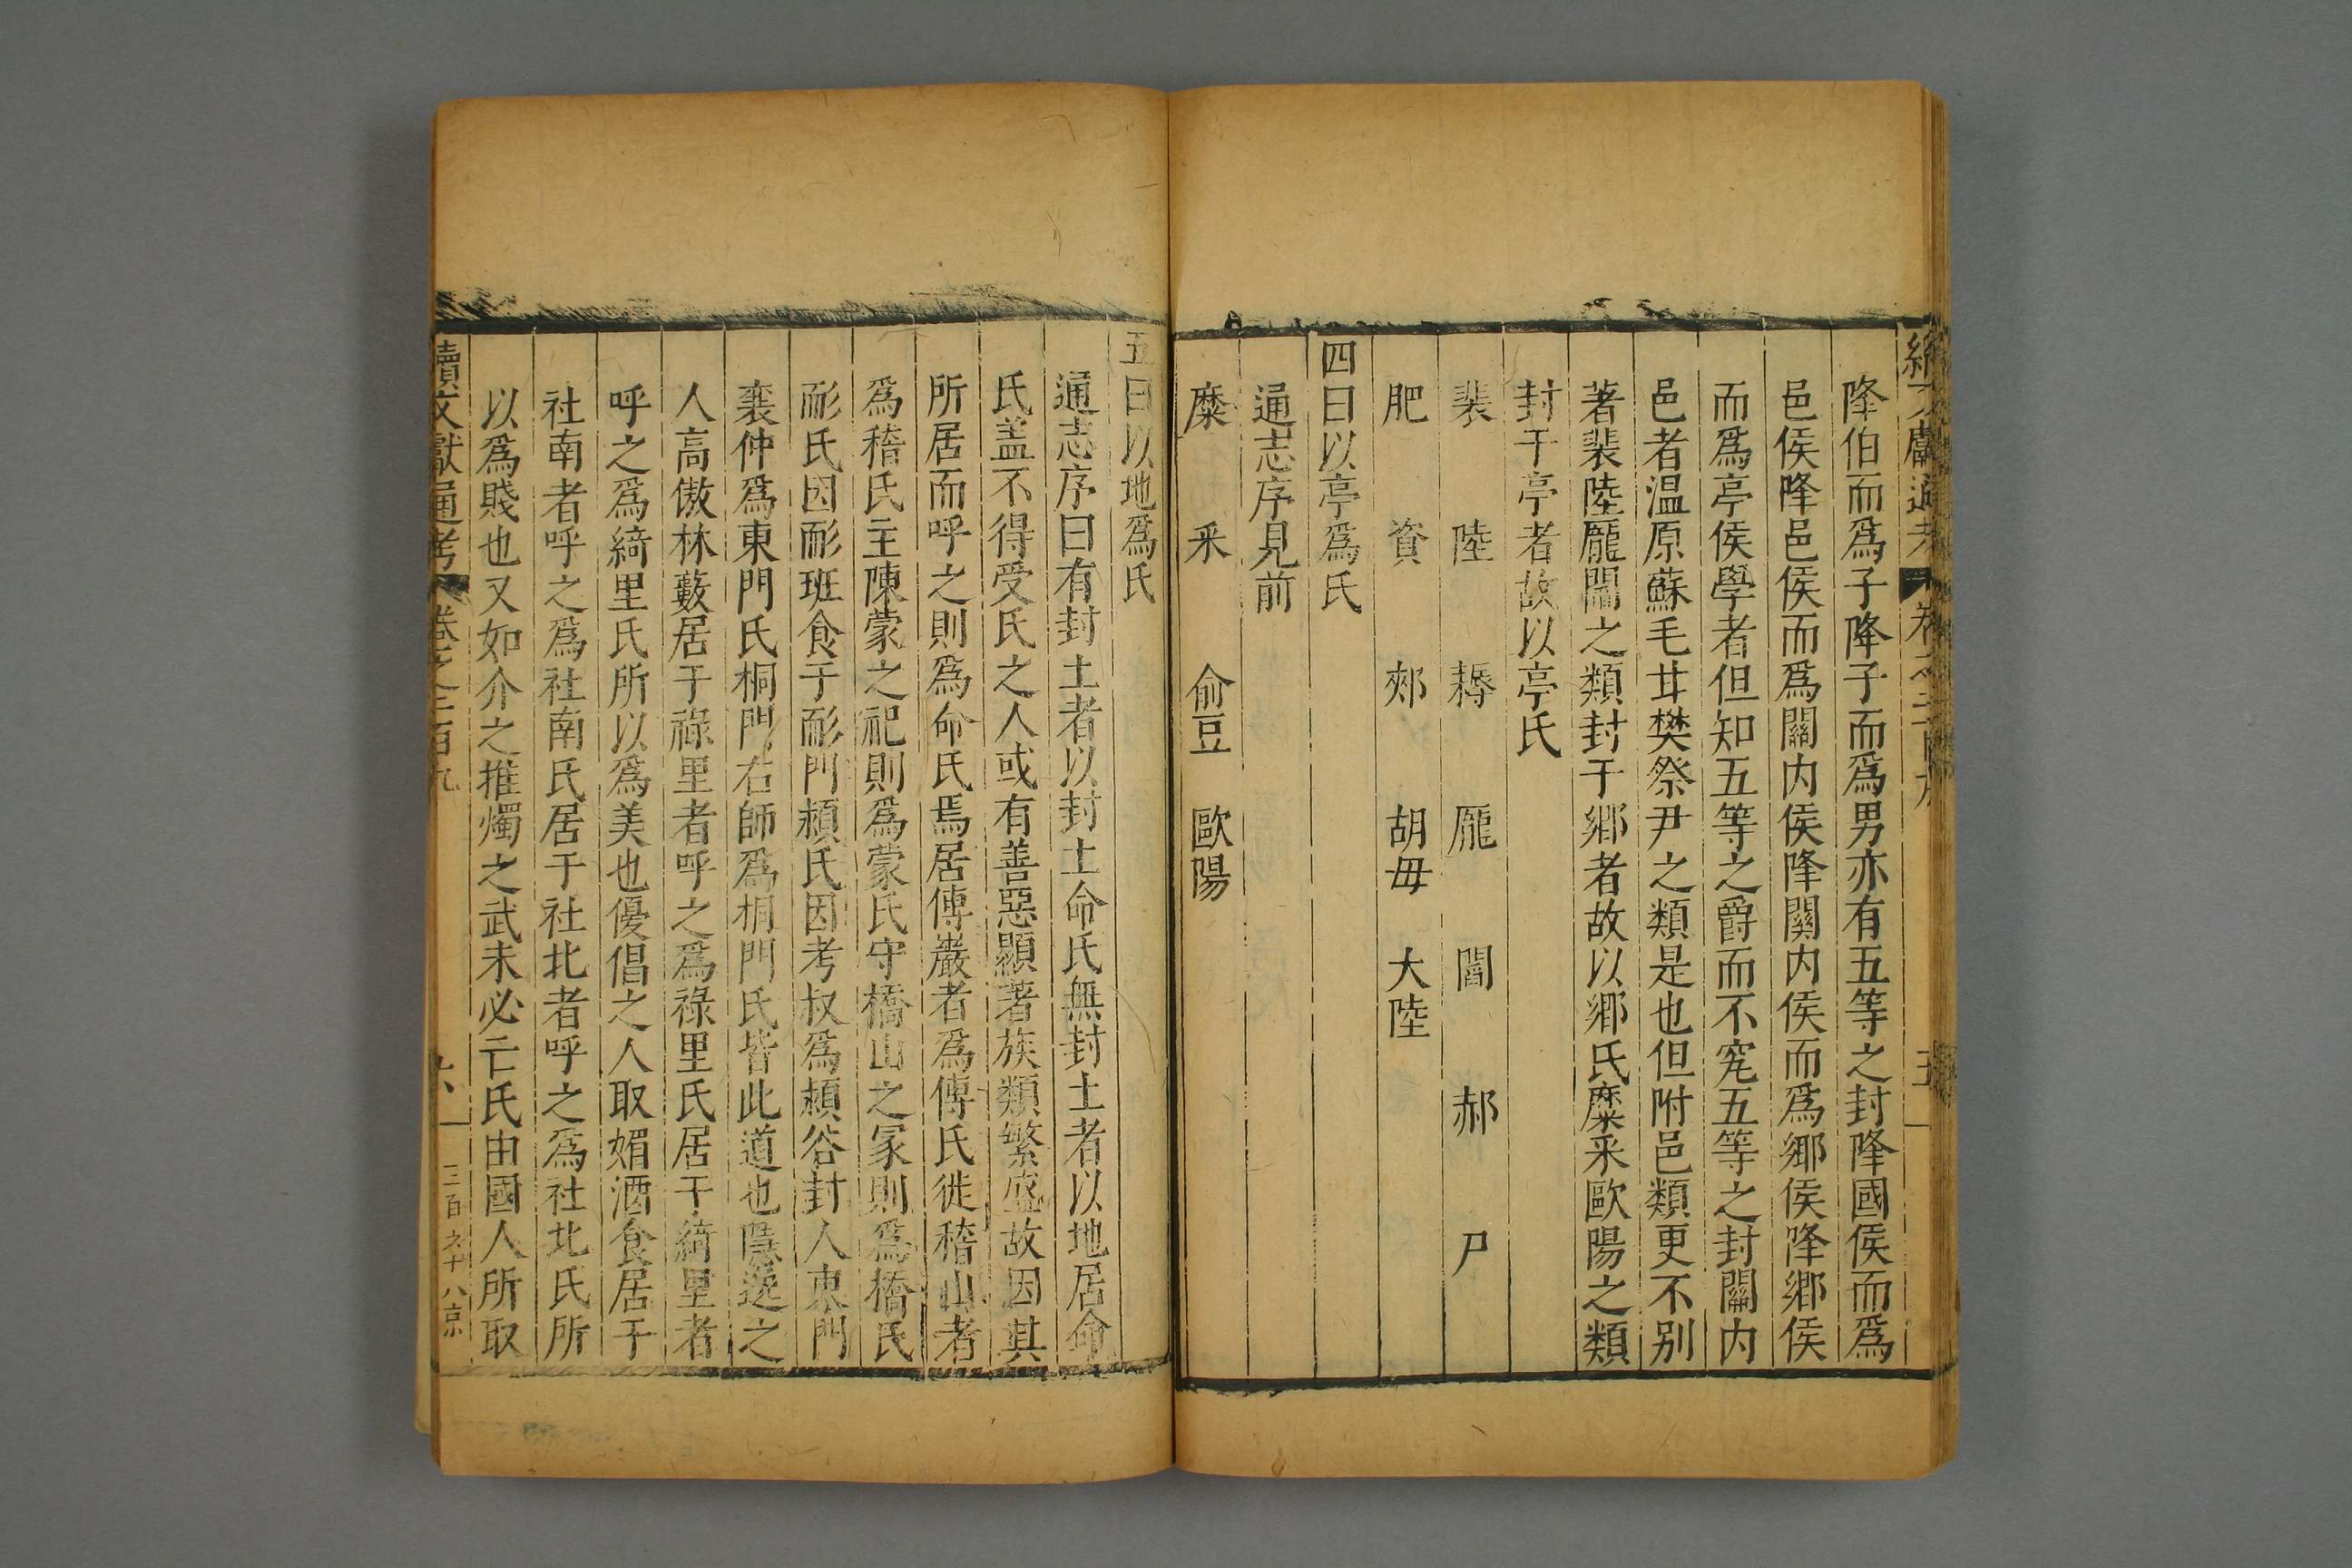 降伯而爲子降子而爲男亦有五等之封降國侯而爲
邑侯降邑侯而爲關内侯降關内侯而爲郷侯降郷侯
而爲亭侯學者但知五等之爵而不究五等之封關内
邑者温原蘇毛甘樊祭尹之類是也但附邑類更不别
著裴陸龐閻之類封于郷者故以郷氏糜采歐陽之類
封于亭者故以亭氏
裴 陸 耨 龐 閻 郝 尸
肥 資 郟 胡毋 大陸
四曰以亭爲氏
通志序見前
糜 采 俞豆 歐陽
五曰以地爲氏
通志序曰有封土者以封土命氏無封土者以地居命
氏盖不得受氏之人或有善惡顯著族類繁盛故因其
所居而呼之則爲命氏焉居傅巖者爲傅氏徙稽山者
爲稽氏主陳蒙之祀則爲蒙氏守橋山之冢則爲橋氏
耏氏因耏班食于耏門潁氏因考叔爲潁谷封人東門
襄仲爲東門氏桐門右師爲桐門氏皆此道也隱逸之
人高傲林藪居于祿里者呼之爲祿里氏居于綺里者
呼之爲綺里氏所以爲美也優倡之人取媚酒食居于
社南者呼之爲社南氏居于社北者呼之爲社北氏所
以爲賤也又如介之推燭之武未必亡氏由國人所取
續文獻通考 卷之二百九 六 三百九十八京